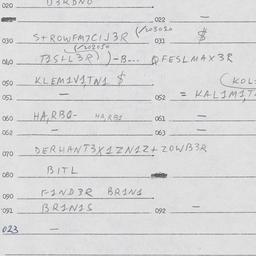 020 U3RDNO
022 —
030 S+ROWFM7CIJ3R (/203020 031 $
(/202050
040 T3S+L3R) )-B... QFESLMAX3R
050 KLEM1V1TN1 $ (KOL
051 — 052 = KAL1M1T
060 HA,RBO- HA,RB1 061 —
062 — 063 —
070 DERHANT3X1ZN1Z+ZOWB3R
080 B1TL
090 F1ND3R BR1N1
091 BR1N1S 092 —
023 —